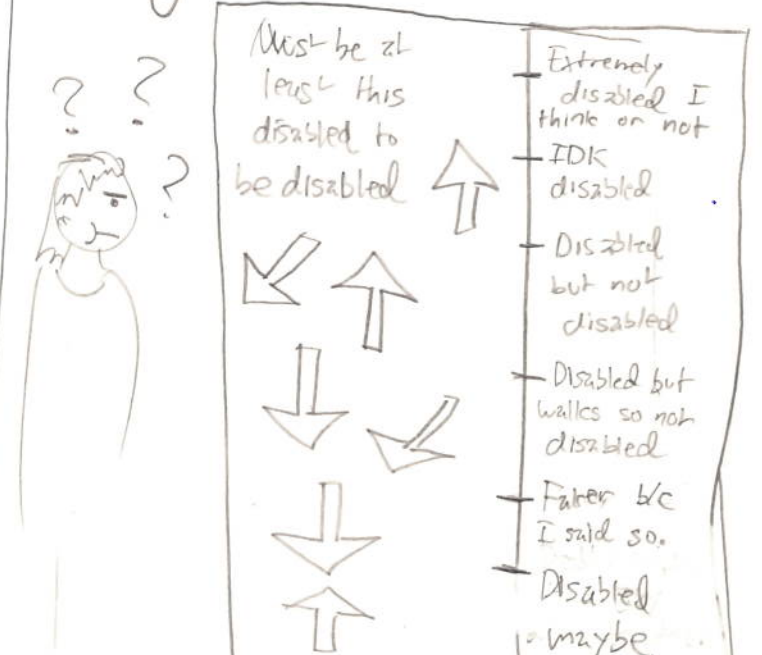 ?
?
?
Must be at
least this
disabled to
be disabled
Extremely
disabled I
think or not
IDK
disabled
Disabled
but not
disabled
Disabled but
walks so not
disabled
Faker b/c
I said so.
Disabled
maybe